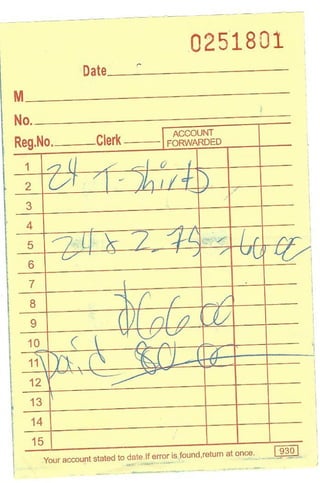 0251801
Date
M
No.
Reg.No. Clerk ACCOUNT FORWARDED
1
2 24 T-Shirts
3
4
5 24 x 2.75 = 66 00
6
7
8
9 $66 00
10
11 paid 80 00
12
13
14
15
Your account stated to date.If error is found,return at once. 930